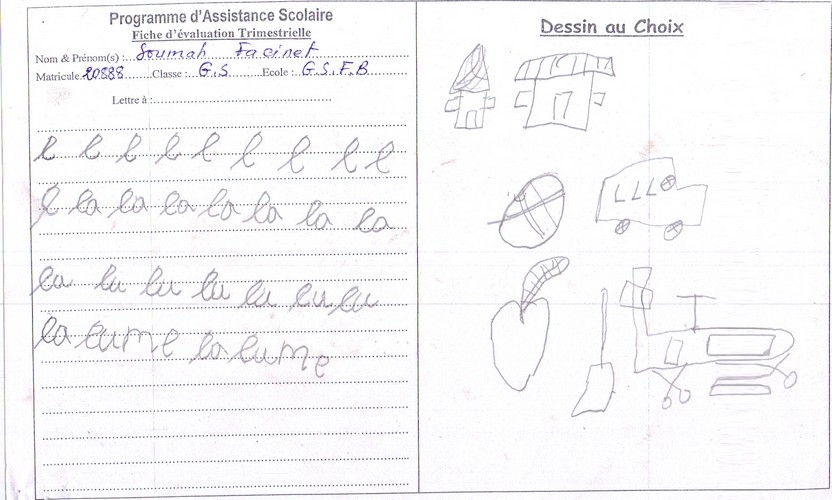 Programme d'Assistance Scolaire
Fiche d'évaluation Trimestrielle
Nom & Prénom(s) : Soumah Facinet
Matricule 20888 Classe : G.S Ecole : G.S.F.B
Lettre à :
l l l l l l l l l
l la la la la la la la
la lu lu lu lu lu lu
la lume la lume
Dessin au Choix
LLL